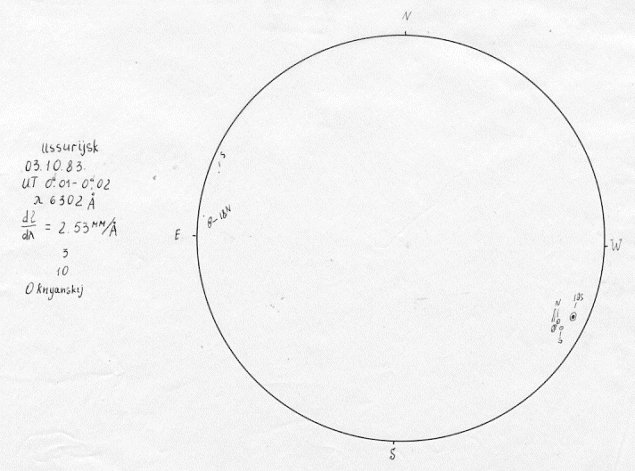 Ussurijsk
03.10.83.
UT 0ʰ.01-0ʰ.02
λ 6302 Å
dl/dλ = 2.53 мм/Å
3
10
Oknyanskij
N
S
E
W
S
N
S